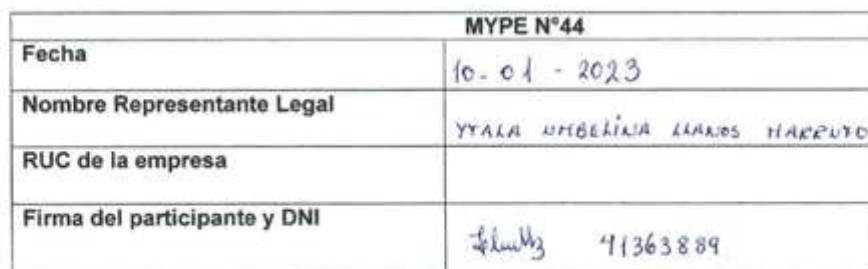 MYPE N°44
Fecha
10-01-2023
Nombre Representante Legal
YTALA UMBELINA LLANOS MARRUFO
RUC de la empresa
Firma del participante y DNI
41363889